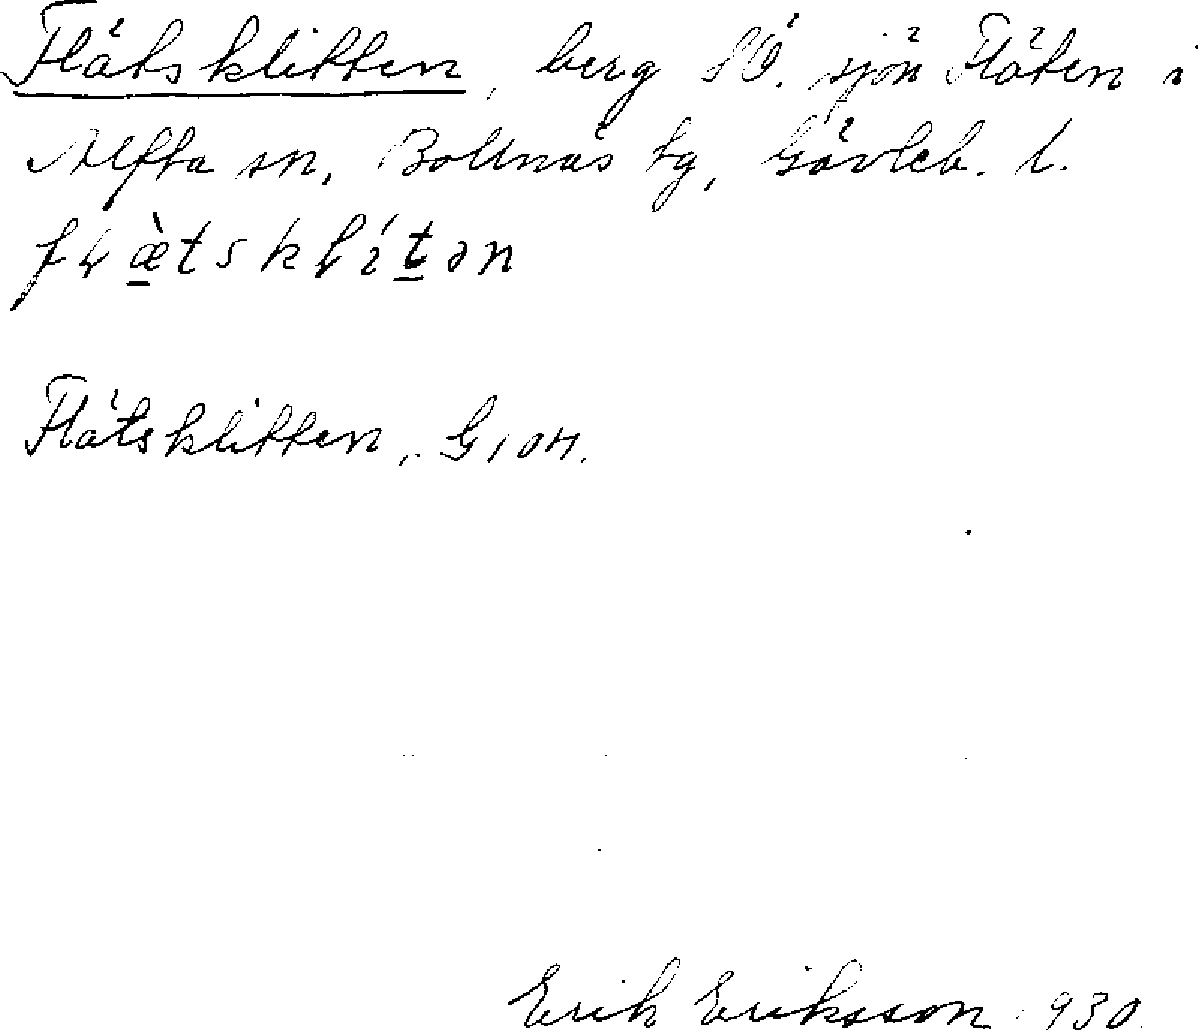 Flätsklitten, berg SÖ. sjön Fläten i
Alfta sn, Bollnäs tg, Gävleb. l.
fɽæ̀tsklítən
Flätsklitten,
Erik Eriksson 1930.